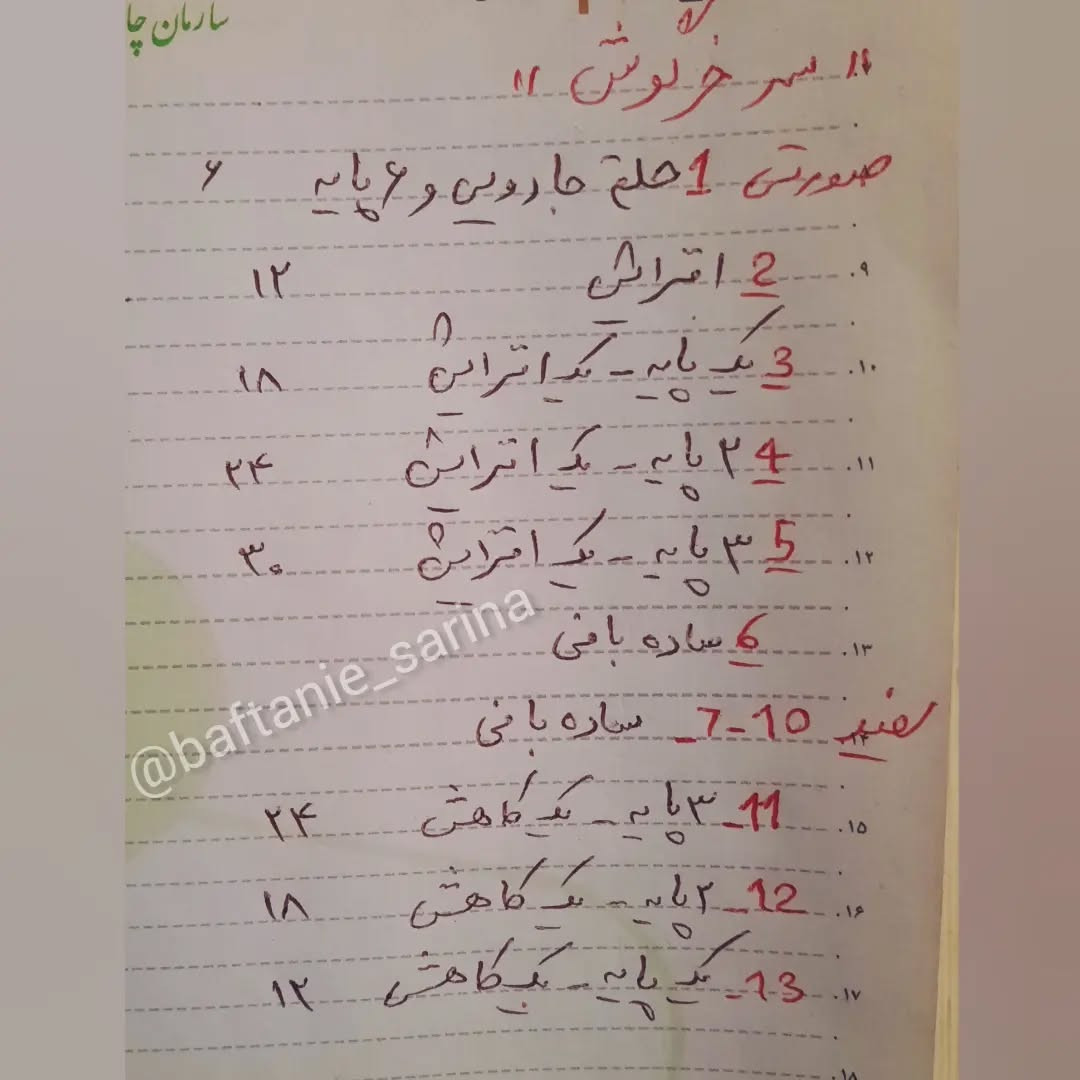 سازمان چا
" سر خرگوش "
صورتی 1 حلقه جادویی و ۶ پایه ۶
۹. 2 افزایش ۱۲
۱۰. 3 یک پایه - یک افزایش ۱۸
۱۱. 4 ۲ پایه - یک افزایش ۲۴
۱۲. 5 ۳ پایه - یک افزایش ۳۰
۱۳. 6 ساده بافی
۱۴. سفید 10-7- ساده بافی
۱۵. 11- ۳ پایه - یک کاهش ۲۴
۱۶. 12- ۲ پایه - یک کاهش ۱۸
۱۷. 13- یک پایه - یک کاهش ۱۲
۱۸.
@baftanie_sarina